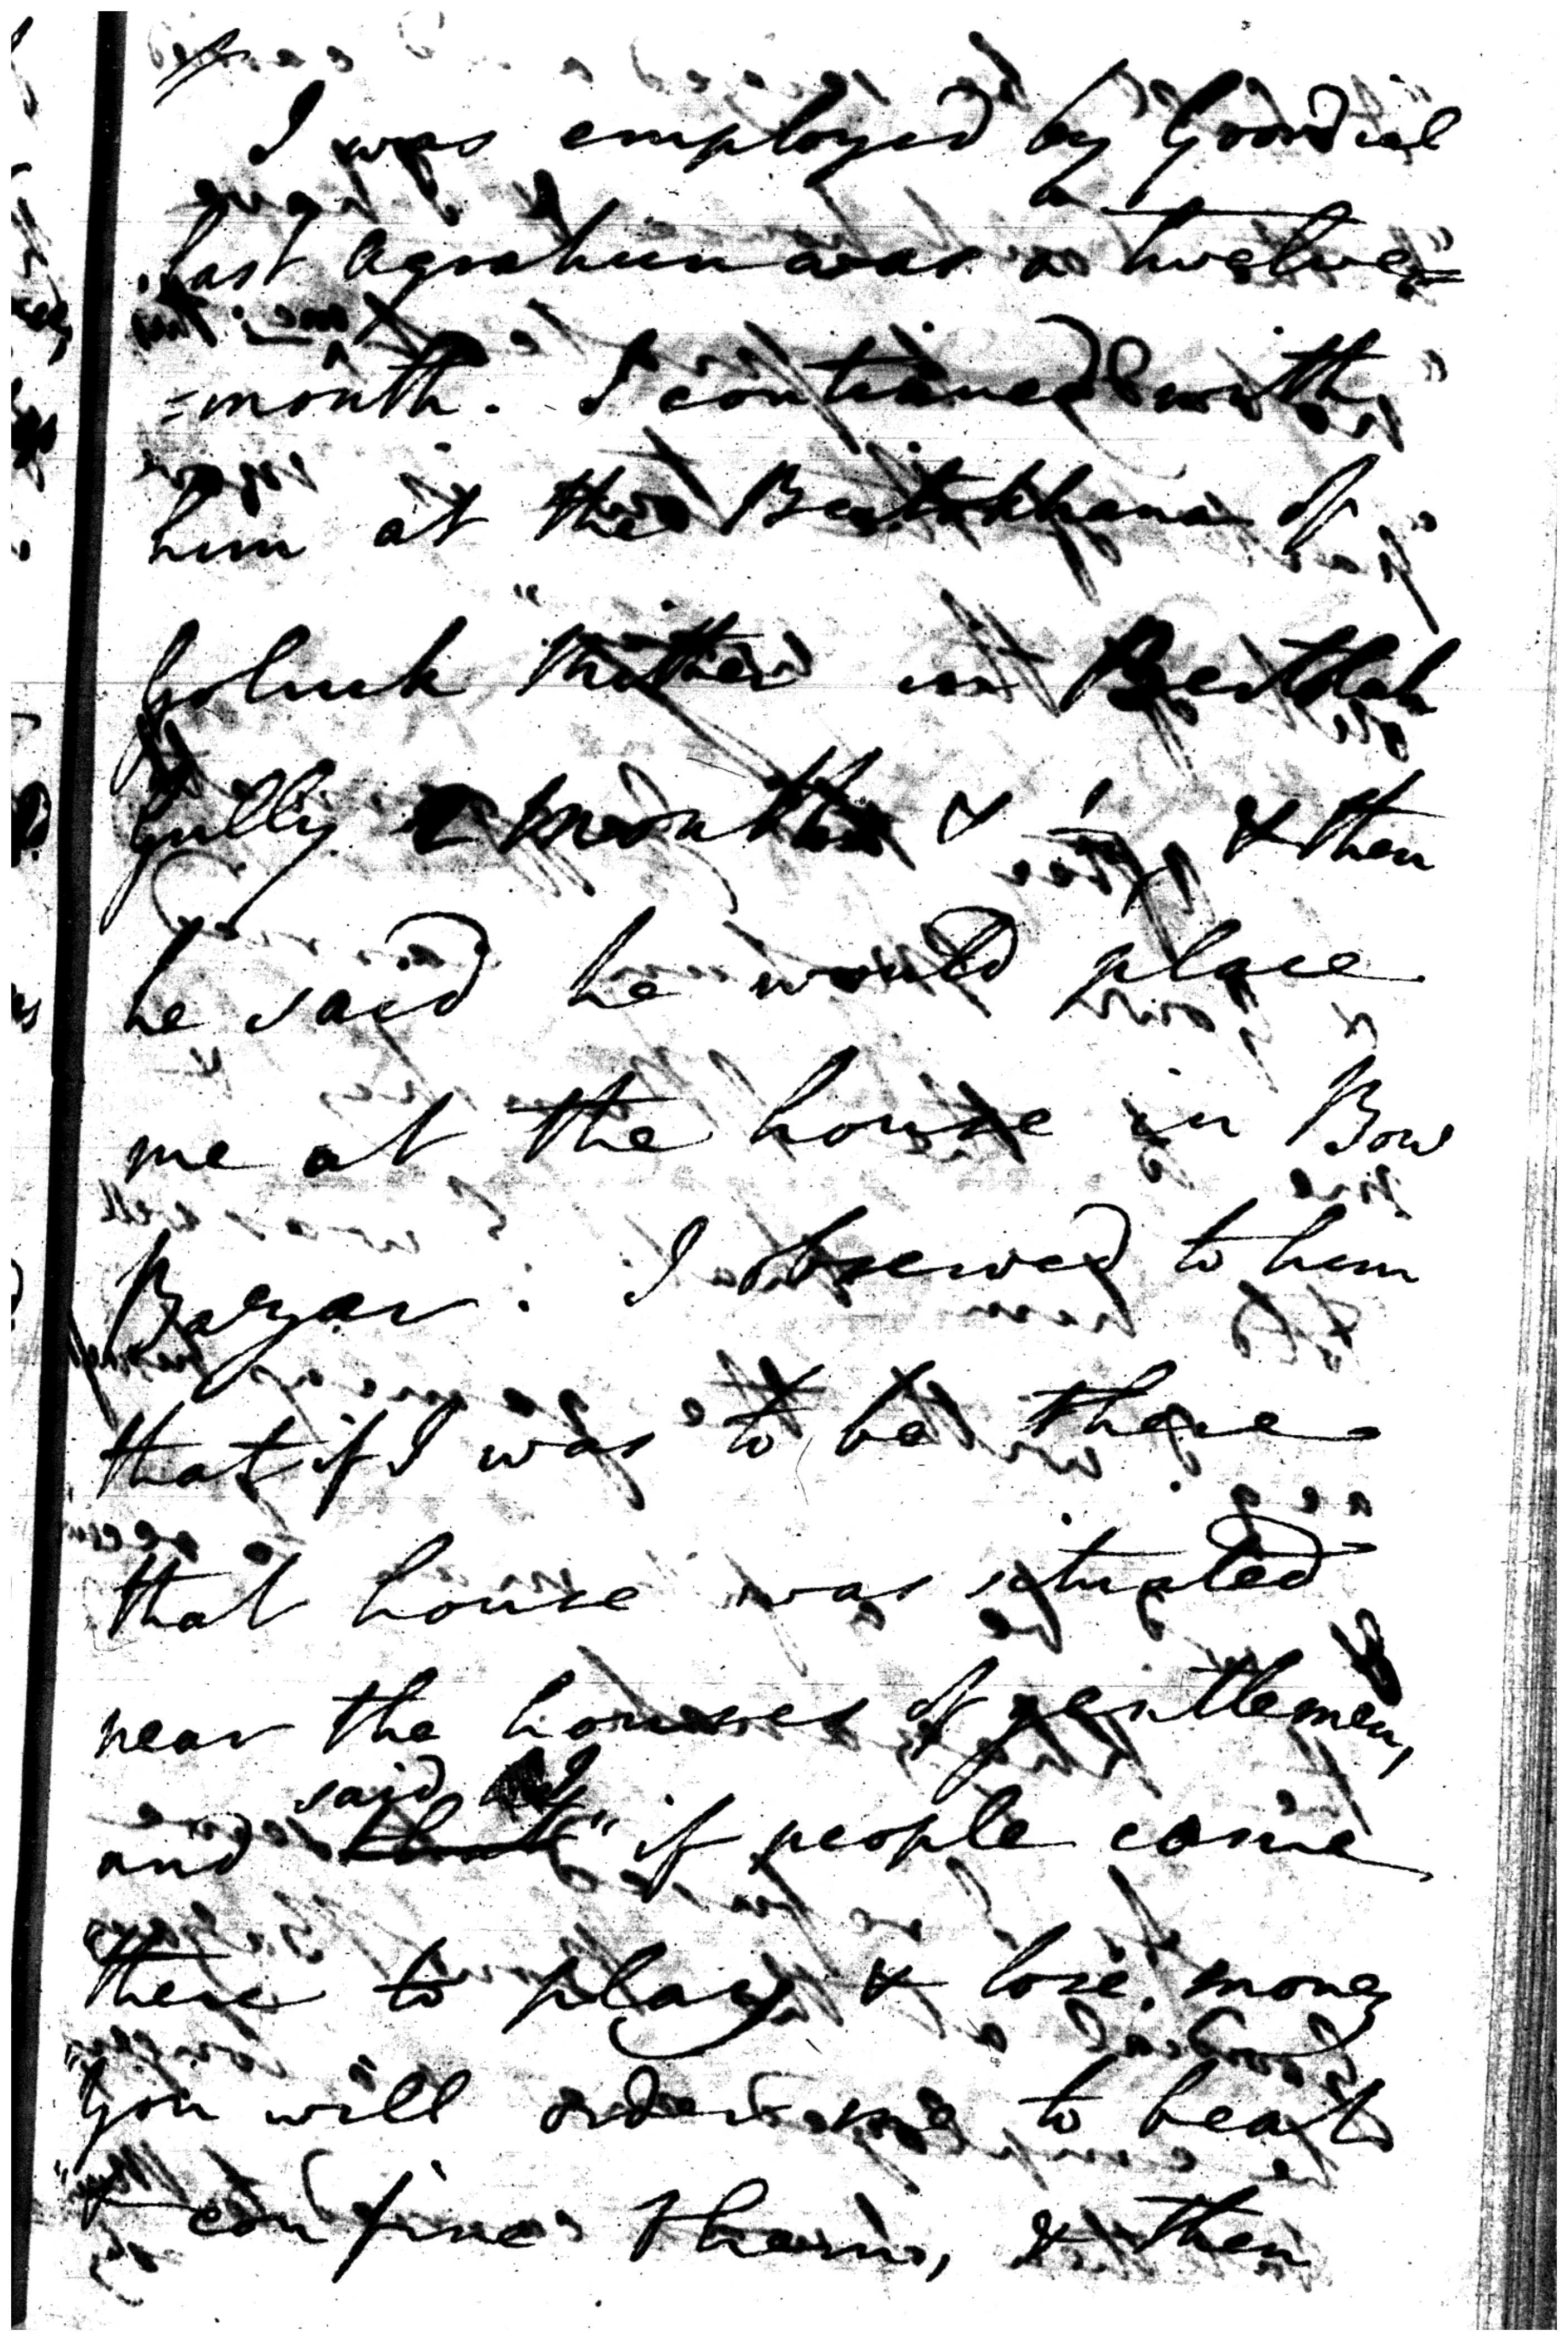 I was employed by Goordial
last Agrahun was a twelve=
=month. I continued with
him at the Boitakhana of
Goluck Mitter in
Gully a month & ½ & then
he said he would place
me at the house in Bow
Bazar. I observed to him
that if I was to be there
that house was situated
near the houses of gentlemen,
said I
and that "if people come
"there to play & lose money
"you will order me to beat
"& confine them, & then